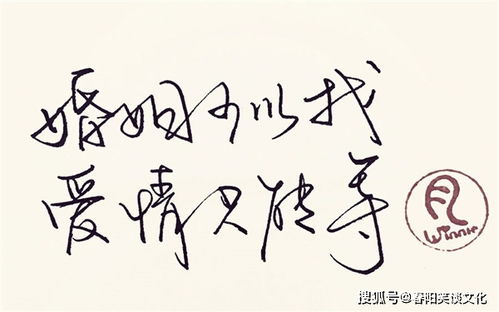 婚姻可以找
爱情只能等
Winnie
搜狐号@春阳笑谈文化